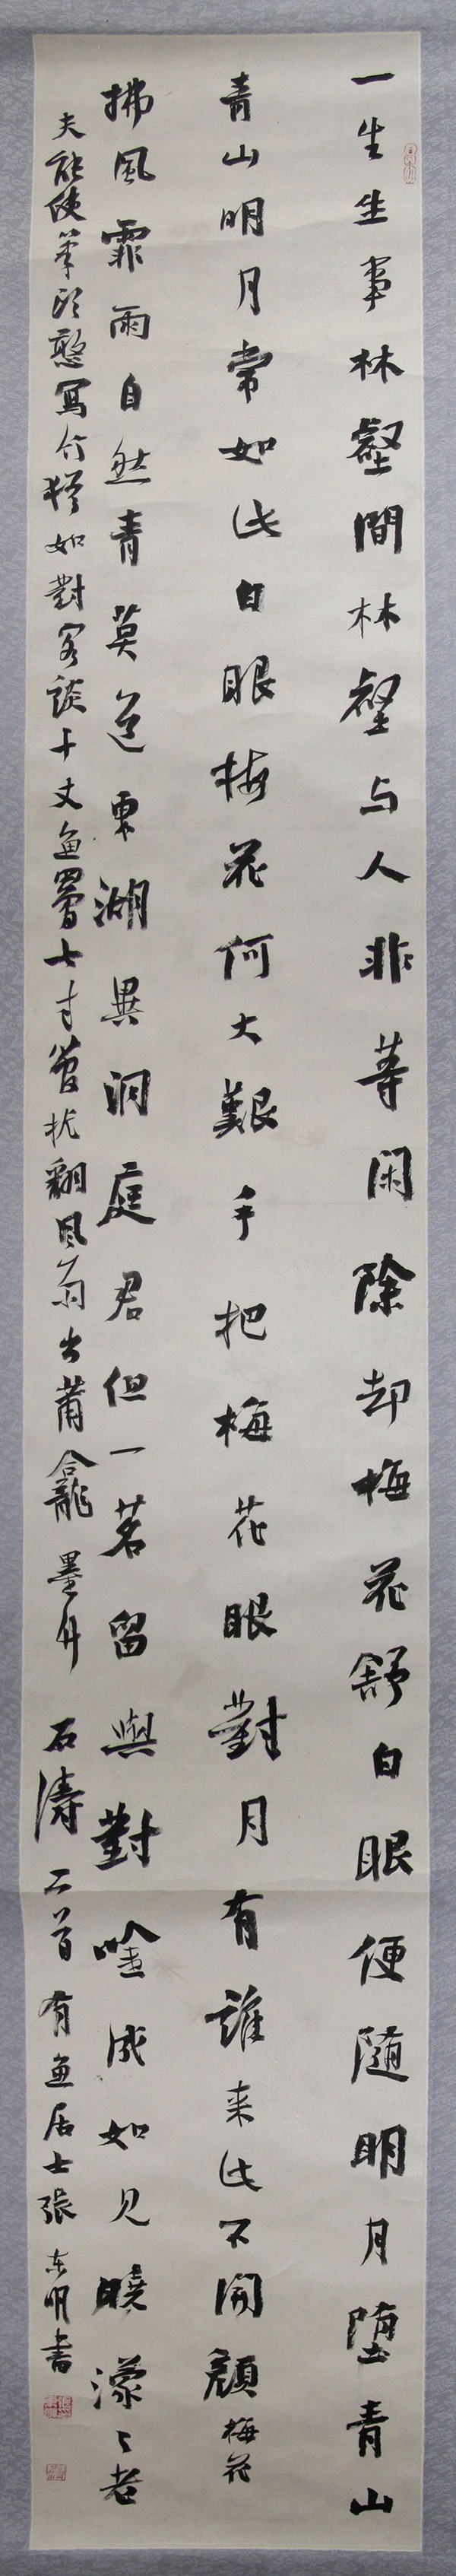 一生生事林壑間林壑与人非等闲除却梅花舒白眼便随明月堕青山
青山明月常如此白眼梅花何大艱手把梅花眼對月有誰来此不開顔梅花
拂風霏雨自然青莫道東湖異洞庭君但一茗留與對唫成如见曉濛〻老
夫能使筆頭憨寫竹猶如對客談十丈魚罾七寸管扰翻風雨出莆龕 墨竹 石涛二首 有魚居士張东明書